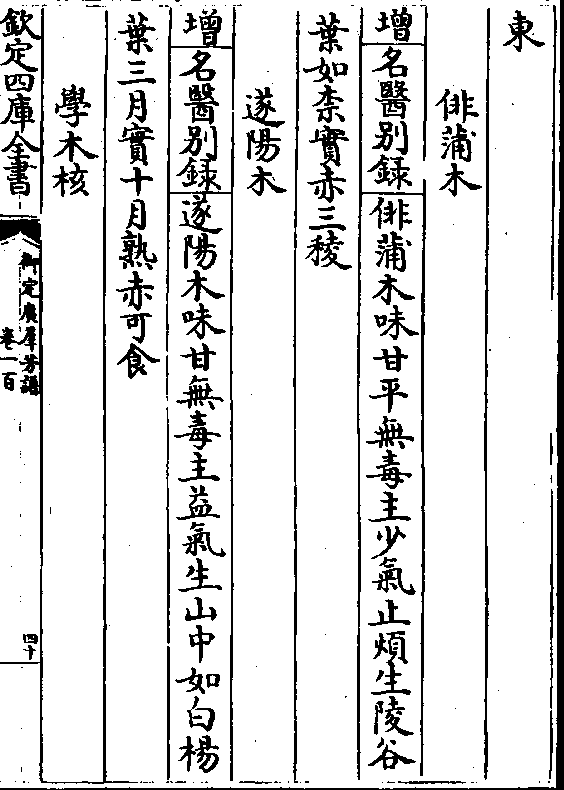 東
俳蒲木
增名醫别録俳蒲木味甘平無毒主少氣止煩生陵谷
葉如柰實赤三稜
遂陽木
增名醫别録遂陽木味甘無毒主益氣生山中如白楊
葉三月實十月熟赤可食
學木核
欽定四庫全書
御定廣羣芳譜
卷一百
四十